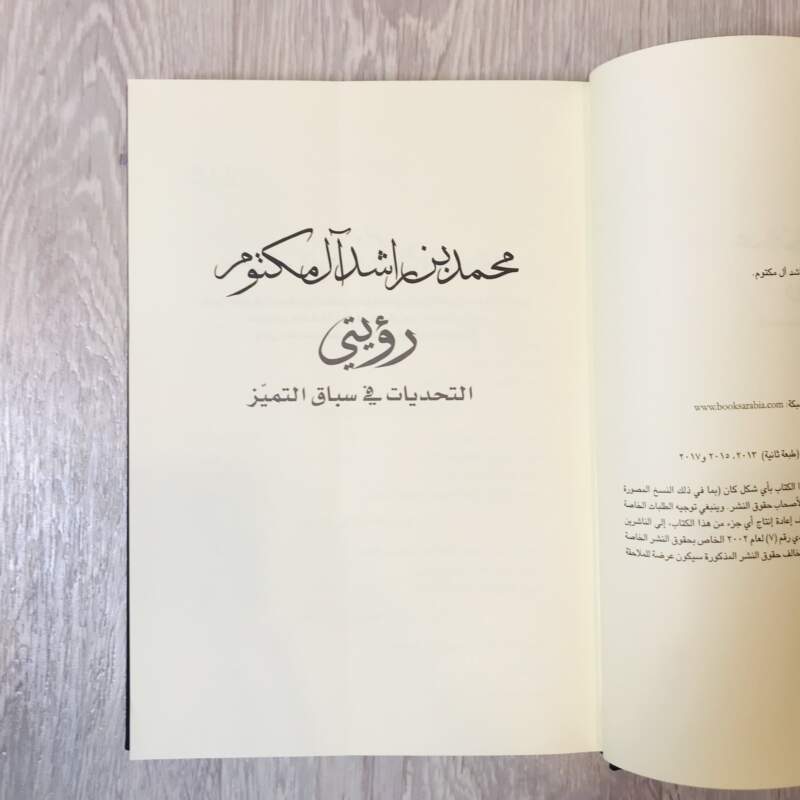 محمد بن راشد آل مكتوم
رؤيتي
التحديات في سباق التميّز
شد آل مكتوم.
بكة: www.booksarabia.com
(طبعة ثانية) ٢٠١٣، ٢٠١٥ و٢٠١٧
ا الكتاب بأي شكل كان (بما في ذلك النسخ المصورة
لأصحاب حقوق النشر. وينبغي توجيه الطلبات الخاصة
إعادة إنتاج أي جزء من هذا الكتاب، إلى الناشرين
دي رقم (٧) لعام ٢٠٠٢ الخاص بحقوق النشر الخاصة
خالف حقوق النشر المذكورة سيكون عرضة للملاحقة